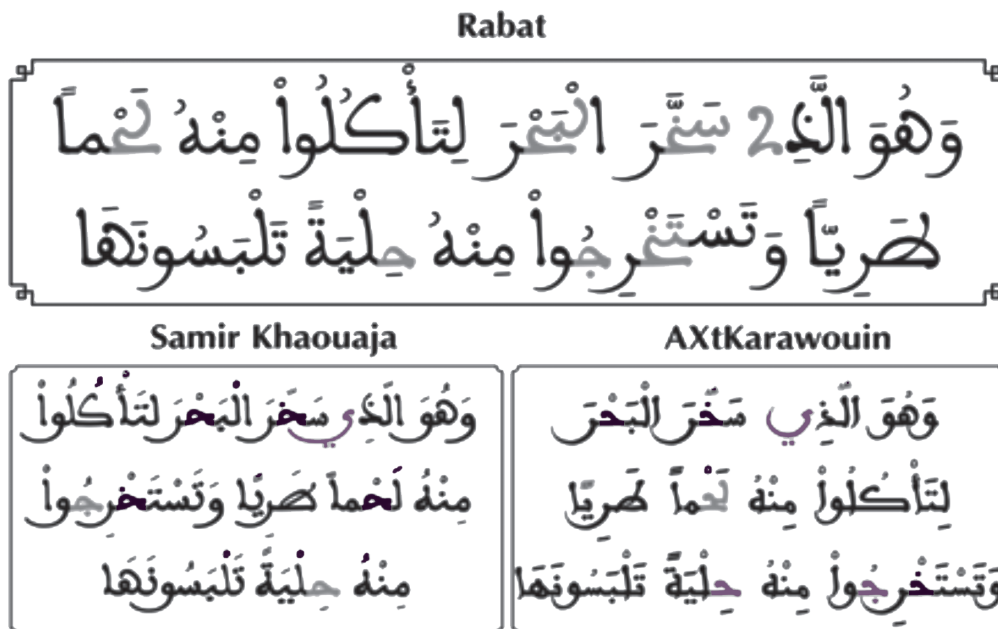 Rabat
وَهُوَ الَّذِے سَخَّرَ الْبَحْرَ لِتَأْكُلُواْ مِنْهُ لَحْماً
طَرِيّاً وَتَسْتَخْرِجُواْ مِنْهُ حِلْيَةً تَلْبَسُونَهَا
Samir Khaouaja
وَهُوَ الَّذِي سَخَّرَ الْبَحْرَ لِتَأْكُلُواْ
مِنْهُ لَحْماً طَرِيّاً وَتَسْتَخْرِجُواْ
مِنْهُ حِلْيَةً تَلْبَسُونَهَا
AXtKarawouin
وَهُوَ الَّذِي سَخَّرَ الْبَحْرَ
لِتَأْكُلُواْ مِنْهُ لَحْماً طَرِيّاً
وَتَسْتَخْرِجُواْ مِنْهُ حِلْيَةً تَلْبَسُونَهَا